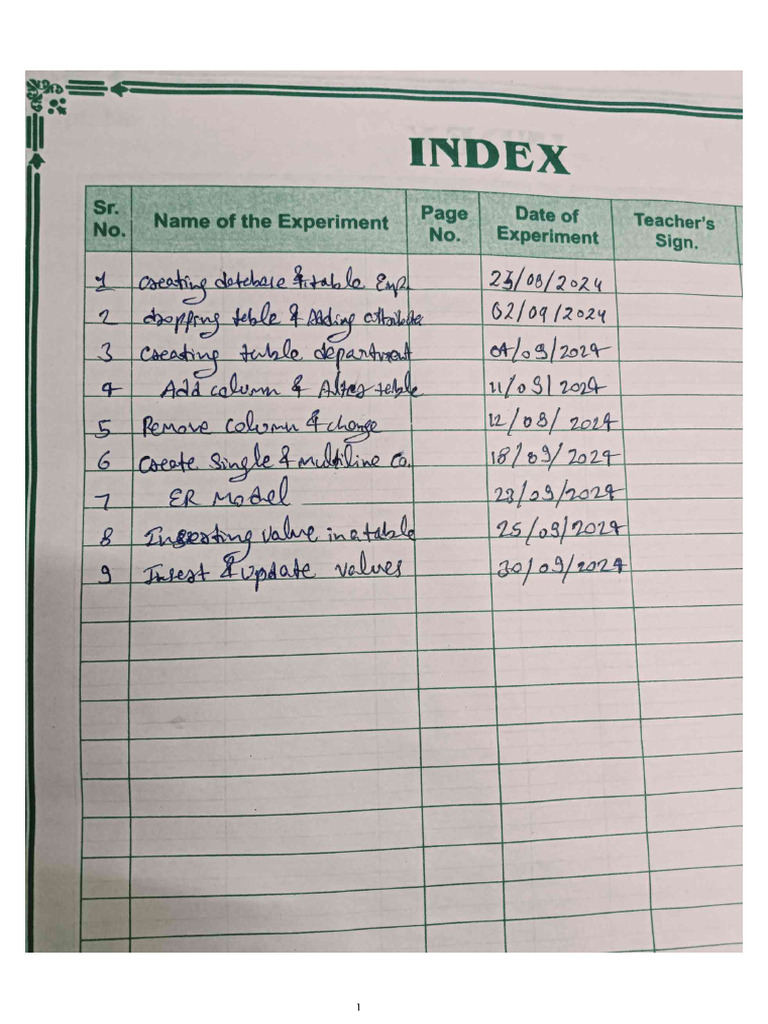 INDEX
Sr. No. Name of the Experiment Page No. Date of Experiment Teacher's Sign.
1 Creating database & table Emp. 23/08/2024
2 dropping table & Adding attribute 02/09/2024
3 Creating table department 04/09/2024
4 Add column & Alter table 11/09/2024
5 Remove column & change 12/09/2024
6 Create Single & multiline Co. 18/09/2024
7 ER Model 23/09/2024
8 Inserting value in a table 25/09/2024
9 Insert & Update values 30/09/2024
1